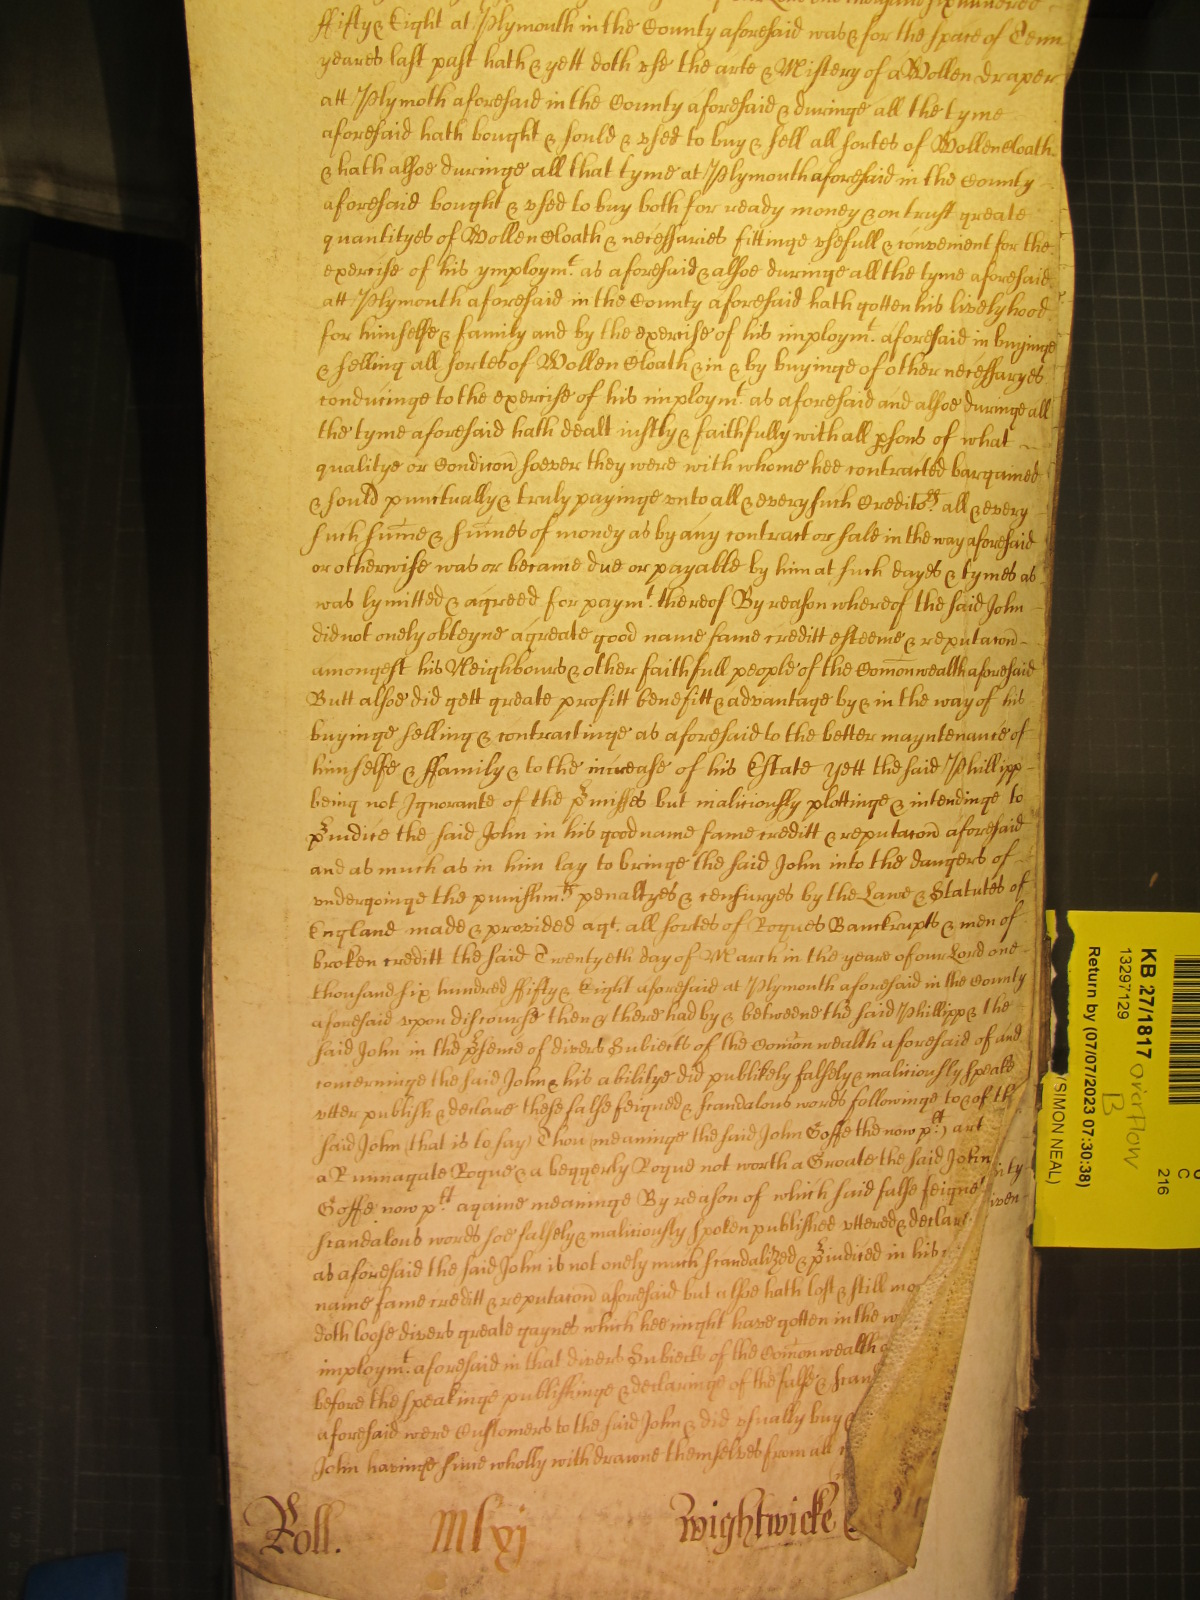 of our Lord one thousand six hundred
ffifty & Eight at Plymouth in the County aforesaid was & for the space of Tenn
yeares last past hath & yett doth vse the arte & Mistery of a Wollen draper
att Plymoth aforesaid in the County aforesaid & duringe all the tyme
aforesaid hath bought & sould & vsed to buy & sell all sortes of Wollen Cloath
& hath alsoe duringe all that tyme at Plymouth aforesaid in the County
aforesaid bought & vsed to buy both for ready money & on trust greate
quantityes of Wollen Cloath & necessaries fittinge vsefull & convenient for the
exercise of his ymploymt. as aforesaid & alsoe duringe all the tyme aforesaid
att Plymouth aforesaid in the County aforesaid hath gotten his livelyhood
for himselfe & family and by the exercise of his imploymt. aforesaid in buyinge
& selling all sortes of Wollen Cloath & in & by buyinge of other necessaryes
conducinge to the exercise of his imploymt. as aforesaid and alsoe duringe all
the tyme aforesaid hath dealt iustly & faithfully with all psons of what
qualitye or Condicon soever they were with whome hee contracted bargained
& sould punctually & truly payinge vnto all & every such Creditors all & every
such sume & sumes of money as by any contract or sale in the way aforesaid
or otherwise was or became due or payable by him at such dayes & tymes as
was lymitted & agreed for paymt. thereof By reason whereof the said John
did not onely obteyne a greate good name fame creditt esteeme & reputacon
amongest his Neighbours & other faithfull people of the Comonwealth aforesaid
Butt alsoe did gett greate profitt benefitt & advantage by & in the way of his
buyinge selling & contractinge as aforesaid to the better mayntenance of
himselfe & ffamily & to the increase of his Estate yett the said Phillipp
being not Ignorante of the pmisses but maliciously plottinge & intendinge to
piudice the said John in his good name fame creditt & reputacon aforesaid
and as much as in him lay to bringe the said John into the dangers of
undergoinge the punishmts penaltyes & censuryes by the Lawe & Statutes of
England made & provided agt. all sortes of Rogues Banckrupts & men of
broken creditt the said Twentyeth day of March in the yeare of our Lord one
thousand six hundred ffifty & Eight aforesaid at Plymouth aforesaid in the County
aforesaid vpon discourse then & there had by & betweene the said Phillipp & the
said John in the psence of divers Subiects of the Comon wealth aforesaid of and
concerninge the said John & his abilitye did publikely falsely & maliciously speake
vtter publish & declare these false feigned & scandalous words followinge to & of the
said John (that is to say) Thou (meaninge the said John Goffe the now plt) art
a Runnagate Rogue & a beggerly Rogue not worth a Groate the said John
Goffe now plt. againe meaninge By reason of which said false feigned
scandalous words soe falsely & maliciously spoken published vttered & declar
as aforesaid the said John is not onely much scandalized & piudiced in his
name fame creditt & reputacon aforesaid but alsoe hath lost & still mo
doth loose divers greate gaynes which hee might have gotten in the w
imploymt. aforesaid in that divers Subiects of the Comon wealth
before the speakinge publishinge & declaringe of the false & scan
aforesaid were Customers to the said John & did vsually buy &
John havinge since wholly withdrawne themselves from all
Roll. Mlxj Wightwicke
KB 27/1817 overflow B
13297129
Return by (07/07/2023 07:30:38)
(SIMON NEAL)
C
216